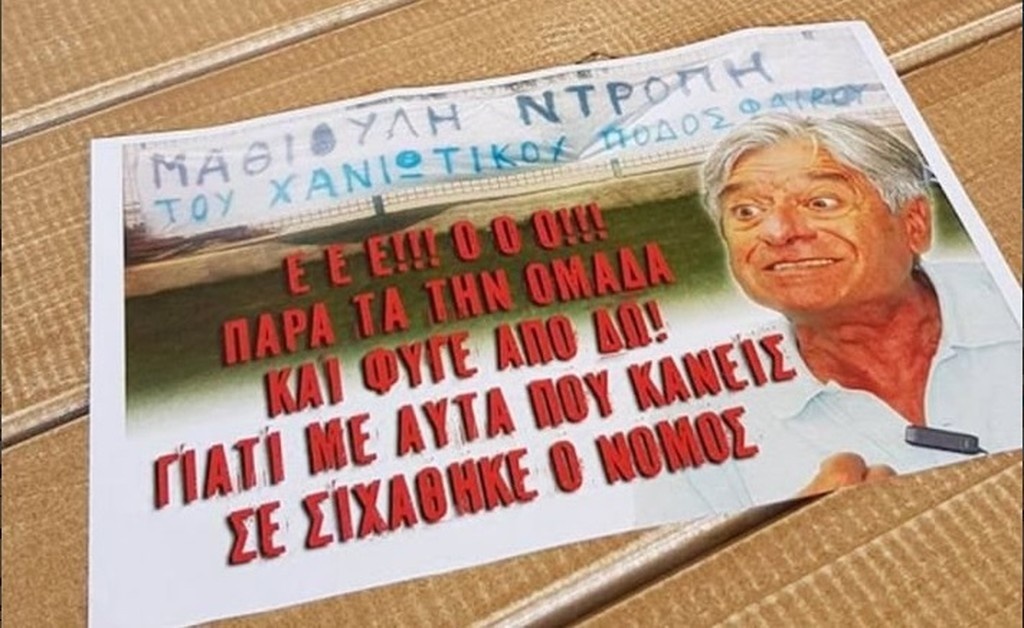 ΜΑΘΙΟΥΛΗ ΝΤΡΟΠΗ
ΤΟΥ ΧΑΝΙΩΤΙΚΟΥ ΠΟΔΟΣΦΑΙΡΟΥ
Ε Ε Ε!!! Ο Ο Ο!!!
ΠΑΡΑ ΤΑ ΤΗΝ ΟΜΑΔΑ
ΚΑΙ ΦΥΓΕ ΑΠΟ ΔΩ!
ΓΙΑΤΙ ΜΕ ΑΥΤΑ ΠΟΥ ΚΑΝΕΙΣ
ΣΕ ΣΙΧΑΘΗΚΕ Ο ΝΟΜΟΣ